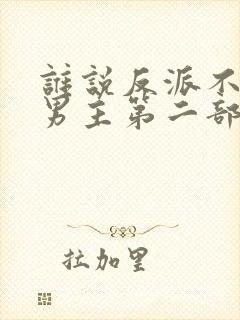 誰說反派不
男主第二部
拉加里